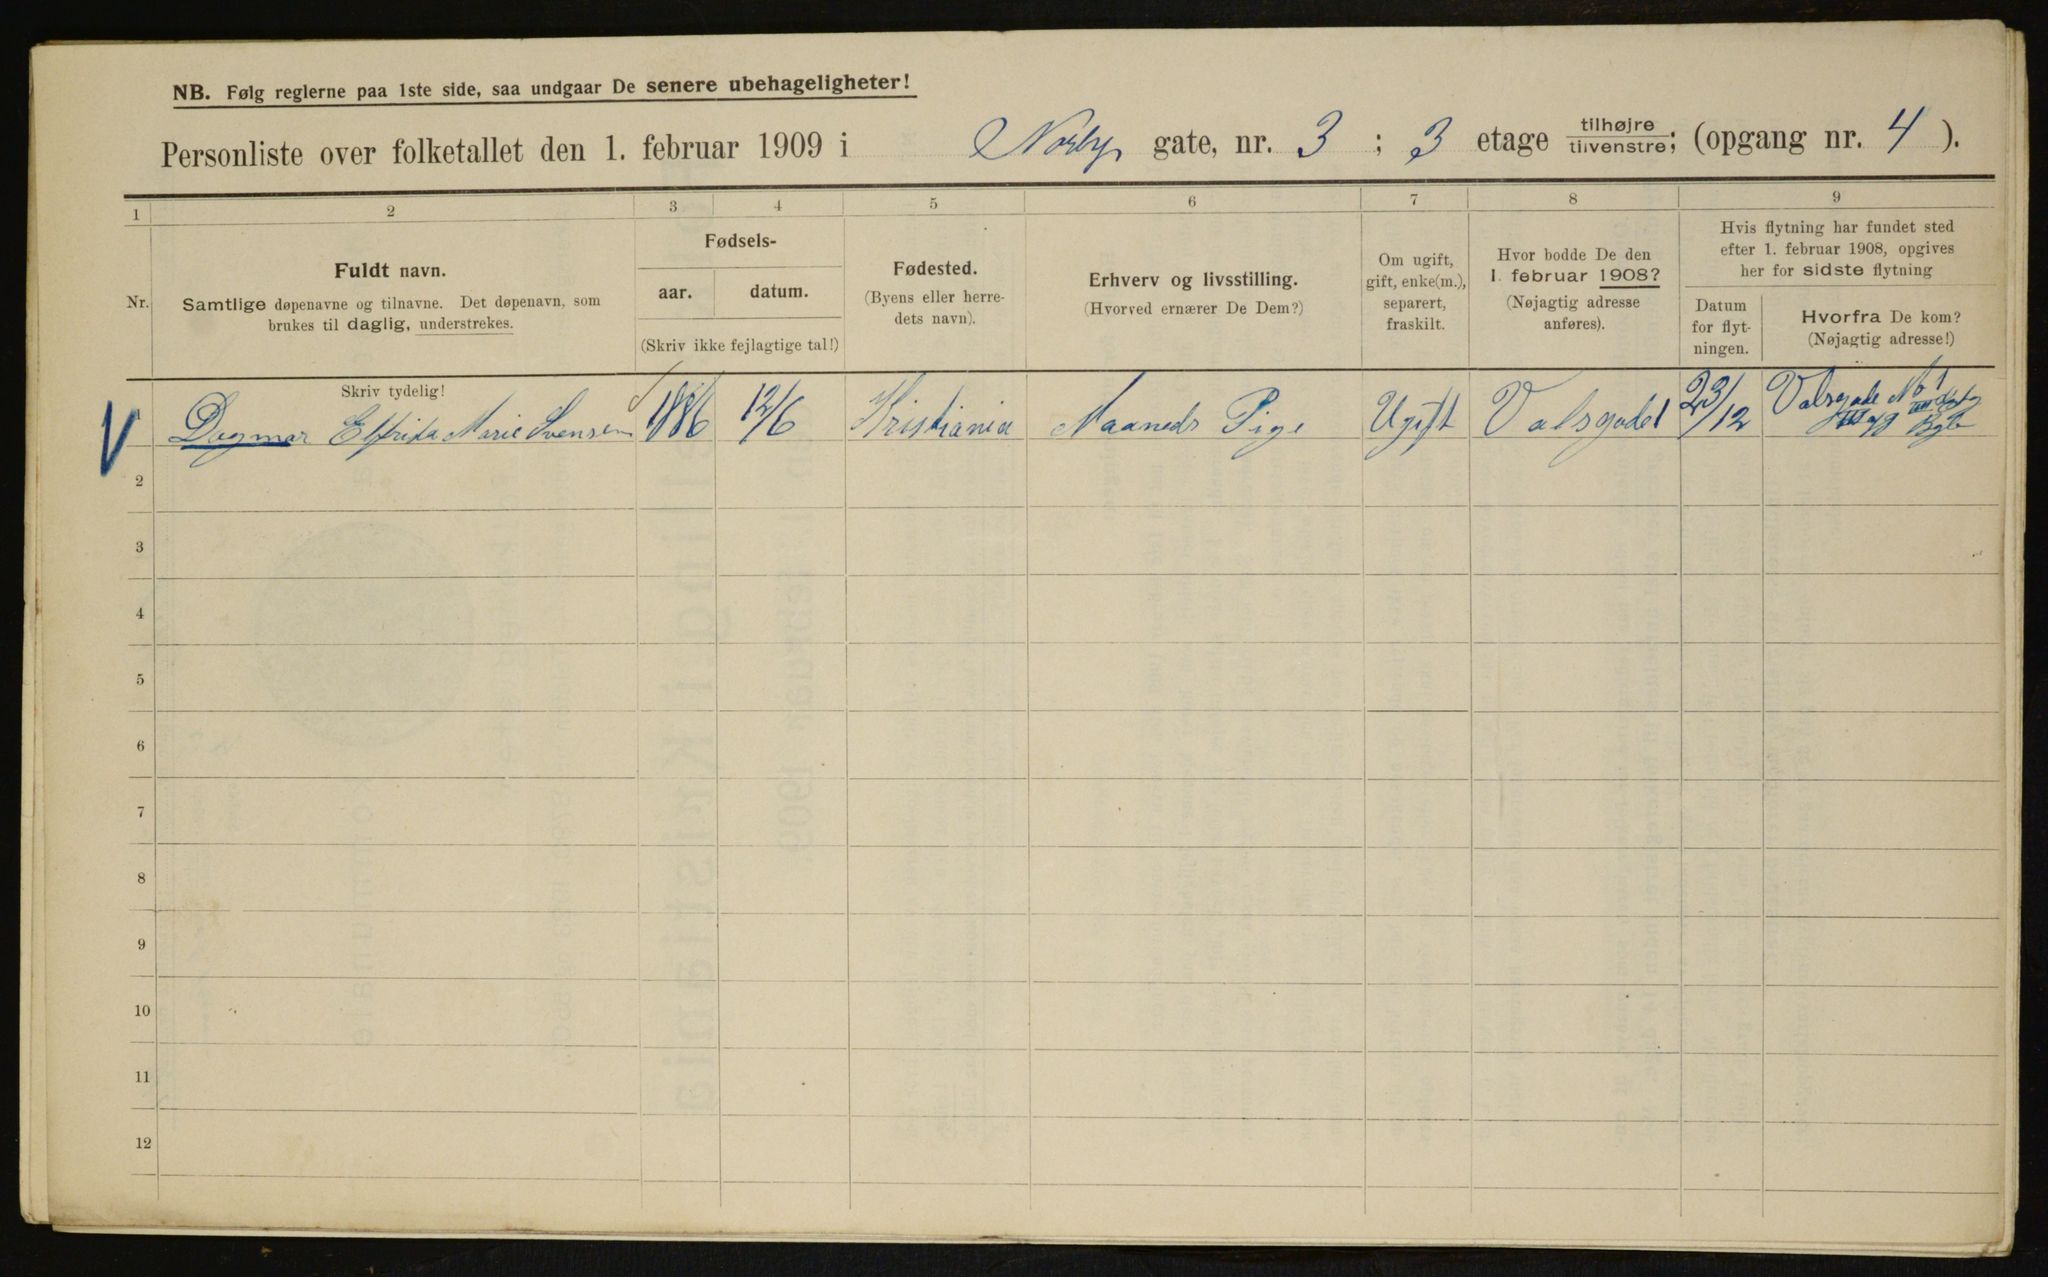 NB. Følg reglerne paa 1ste side, saa undgaar De senere ubehageligheter!
Personliste over folketallet den 1. februar 1909 i Norby gate, nr. 3 ; 3 etage tilhøjre tilvenstre; (opgang nr. 4 ).
1 2 3 4 5 6 7 8 9
Nr.
Fuldt navn.
Samtlige døpenavne og tilnavne. Det døpenavn, som
brukes til daglig, understrekes.
Skriv tydelig!
Fødsels-
aar. datum.
(Skriv ikke fejlagtige tal!)
Fødested.
(Byens eller herre-
dets navn).
Erhverv og livsstilling.
(Hvorved ernærer De Dem?)
Om ugift,
gift, enke(m.),
separert,
fraskilt.
Hvor bodde De den
1. februar 1908?
(Nøjagtig adresse
anføres).
Hvis flytning har fundet sted
efter 1. februar 1908, opgives
her for sidste flytning
Datum
for flyt-
ningen.
Hvorfra De kom?
(Nøjagtig adresse!)
V 1 Dagmar Elfrida Marie Svensen 1886 12/6 Kristiania Maaneds Pige Ugift Valsgade 1 23/12 Valsgade No 1
2
3
4
5
6
7
8
9
10
11
12